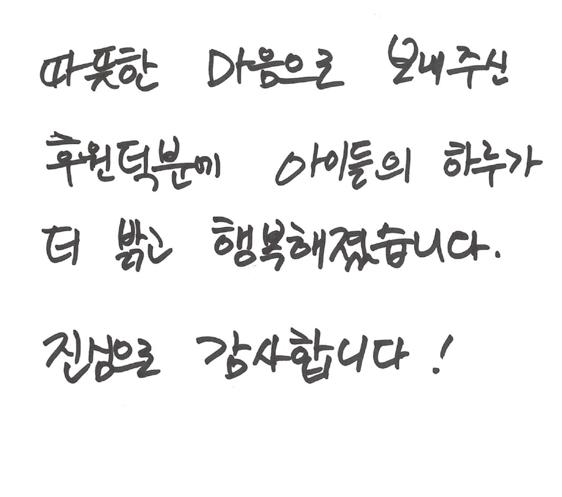 따뜻한 마음으로 보내주신
후원덕분에 아이들의 하루가
더 밝고 행복해졌습니다.
진심으로 감사합니다!